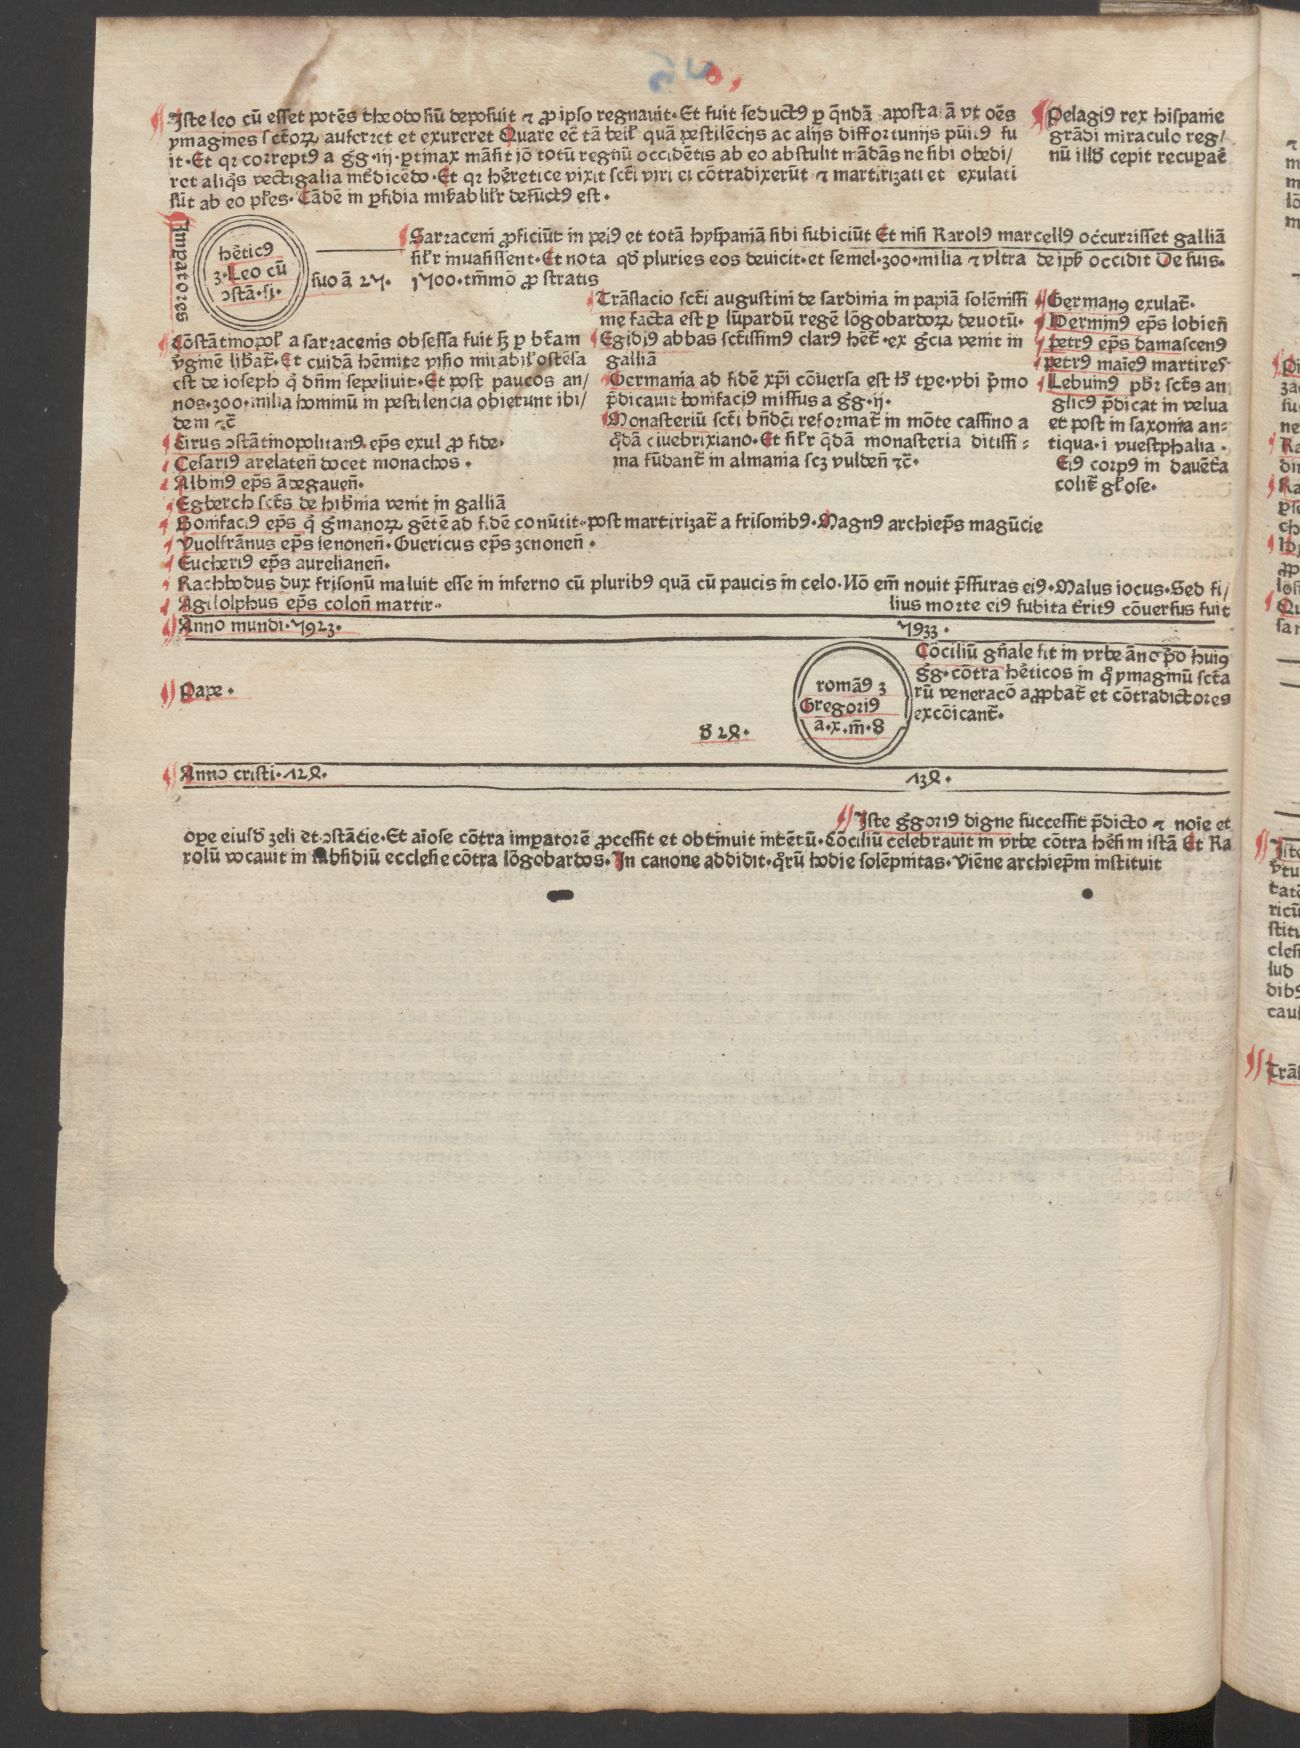 Iste leo cū esset potēs theodosiū deposuit ⁊ ꝓ ipso regnauit. Et fuit seductꝰ ꝑ q̄ndā apostatā vt oēs
ymagines sctōꝝ auferret et exureret Quare ec̄ tā bell̓ quā pestilēcijs ac alijs diffortunijs pūitꝰ fu
it. Et qꝛ correptꝰ a gg̓. iij. ꝑtinax māsit iō totū regnū occidētis ab eo abstulit mādās ne sibi obedi/
ret aliq̓s vectigalia īpēdicēdo. Et qꝛ hēretice vixit scti viri ei cōtradixerūt ⁊ martirizati et exulati
sūt ab eo pl̓es. Tādē in ꝑfidia mir̓abilit̓ defūctꝰ est.
Pelagiꝰ rex hispanie
grādi miraculo reg/
nū illd̓ cepit recuꝑat̓
Imperatores
hēticꝰ
3. Leo cū
ↄstā. fi.
suo ā 27.
Sarraceni ꝓficiūt in peiꝰ et totā hyspaniā sibi subiciūt Et nisi Karolꝰ marcellꝰ occurrisset galliā
sil̓r inuasissent. Et nota qd̓ pluries eos deuicit. et semel. 300. milia ⁊ vltra de ip̄s occidit De suis.
1700. tm̄mō ꝓstratis
Trāslacio scti augustini de sardinia in papiā solēnissi
me facta est ꝑ lūpardū regē lōgobardoꝝ deuotū.
Egidiꝰ abbas sctissimꝰ clarꝰ hēt̓. ex gc̄ia venit in
galliā
Germania ad fidē xp̄i cōuersa est h̓ tp̄e. vbi p̄mo
p̄dicauit bonifaciꝰ missus a gg̓. ij.
Monasteriū scti bn̄dc̄i reformat̓ in mōte cassino a
q̓dā ciuebrixiano. Et sil̓r q̓dā monasteria ditissi=
ma fūdant̓ in almania scꝫ vulden̄ ⁊c̄.
Germanꝰ exulat̓.
Perminꝰ ep̄s lobien̄
petrꝰ ep̄s damascenꝰ
petrꝰ maieꝰ martires
Lebuinꝰ pb̓r sctēs an
glicꝰ p̄dicat in velua
et post in saxonia an=
tiqua. i vuestphalia.
Eiꝰ corpꝰ in dauēt̓a
colit̓ gl̓ose.
Cōstātinopol̓ a sarracenis obsessa fuit sꝫ ꝑ btām
v̓ginē lib̓at̓. Et cuidā hēmite visio mirabil̓ ostēsa
est de ioseph q̓ dn̄m sepeliuit. Et post paucos an/
nos. 300. milia hominū in pestilencia obierunt ibi/
dem ⁊c̄
Cirus ↄstātinopolitanꝰ ep̄s exul ꝓ fide.
Cesariꝰ arelaten̄ docet monachos.
Albinꝰ ep̄s ādegauen̄.
Egberch sctēs de hib̓nia venit in galliā
Bonifaciꝰ ep̄s q̓ g̓manoꝝ gētē ad fidē cōnūtit. post martirizat̓ a frisonibꝰ. Magnꝰ archiep̄s magūcie
Vuolfrānus ep̄s senonen̄. Guericus ep̄s zenonen̄.
Eucheriꝰ ep̄s aurelianen̄.
Rachbodus dux frisonū maluit esse in inferno cū pluribꝰ quā cū paucis in celo. Nō em̄ nouit p̄ssuras eiꝰ. Malus iocus. Sed fi/
lius morte eiꝰ subita t̓ritꝰ cōuersus fuit
Agilolphus ep̄s colon̄ martir.
Anno mundi. 7923. 7933.
Pape.
romāꝰ 3
Gregoriꝰ
ā. x. m̄. 8
Cōciliū gn̄ale fit in vrbe āno p̄o huiꝰ
gg̓. cōtra hēticos in q̓ ymaginū sctā
rū veneracō aꝓbat̓ et cōtradictores
excōicant̓.
8 2 ꝝ.
Anno cristi. 12ꝝ. 13ꝝ.
Iste gg̓oriꝰ digne successit p̄dicto ⁊ noīe et
ope eiusd̓ zeli et ↄstātie. Et aīose cōtra impatorē ꝓcessit et obtinuit intētū. Cōciliū celebrauit in vrbe cōtra hēsim istā Et Ka
rolū vocauit in subsidiū ecclesie cōtra lōgobardos. In canone addidit. q̓rū hodie solēpnitas. Viēne archiep̄m instituit